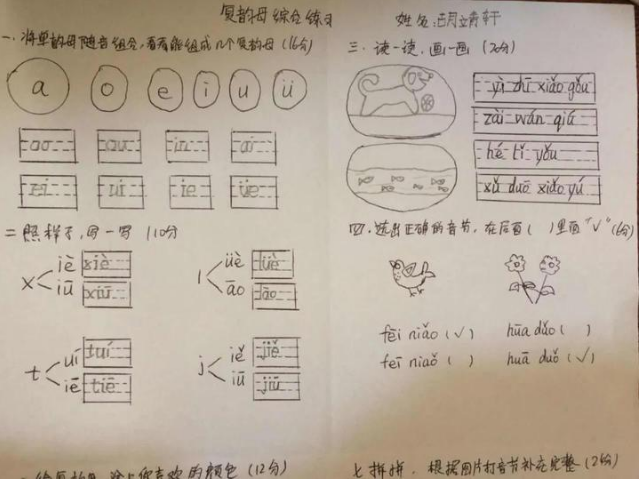 复韵母综合练习
姓名:胡靖轩
一、将单韵母随意组合,看看能组成几个复韵母(16分)
a o e i u ü
ao ou iu ai
ei ui ie üe
二 照样子,写一写 (10分)
x iè xiè
iū xiū
l üè lüè
āo lāo
t uí tuí
iē tiē
j iě jiě
iū jiū
三、读一读,画一画(20分)
yì zhī xiǎo gǒu
zài wán qiú
hé lǐ yǒu
xǔ duō xiǎo yú
四、选出正确的音节,在后面( )里画"√"(6分)
fēi niǎo (√) huā dǎo ( )
feī niaǒ ( ) huā duǒ (√)
涂上你喜欢的颜色 (12分)
七 拼拼,根据图片打音节补充完整(12分)